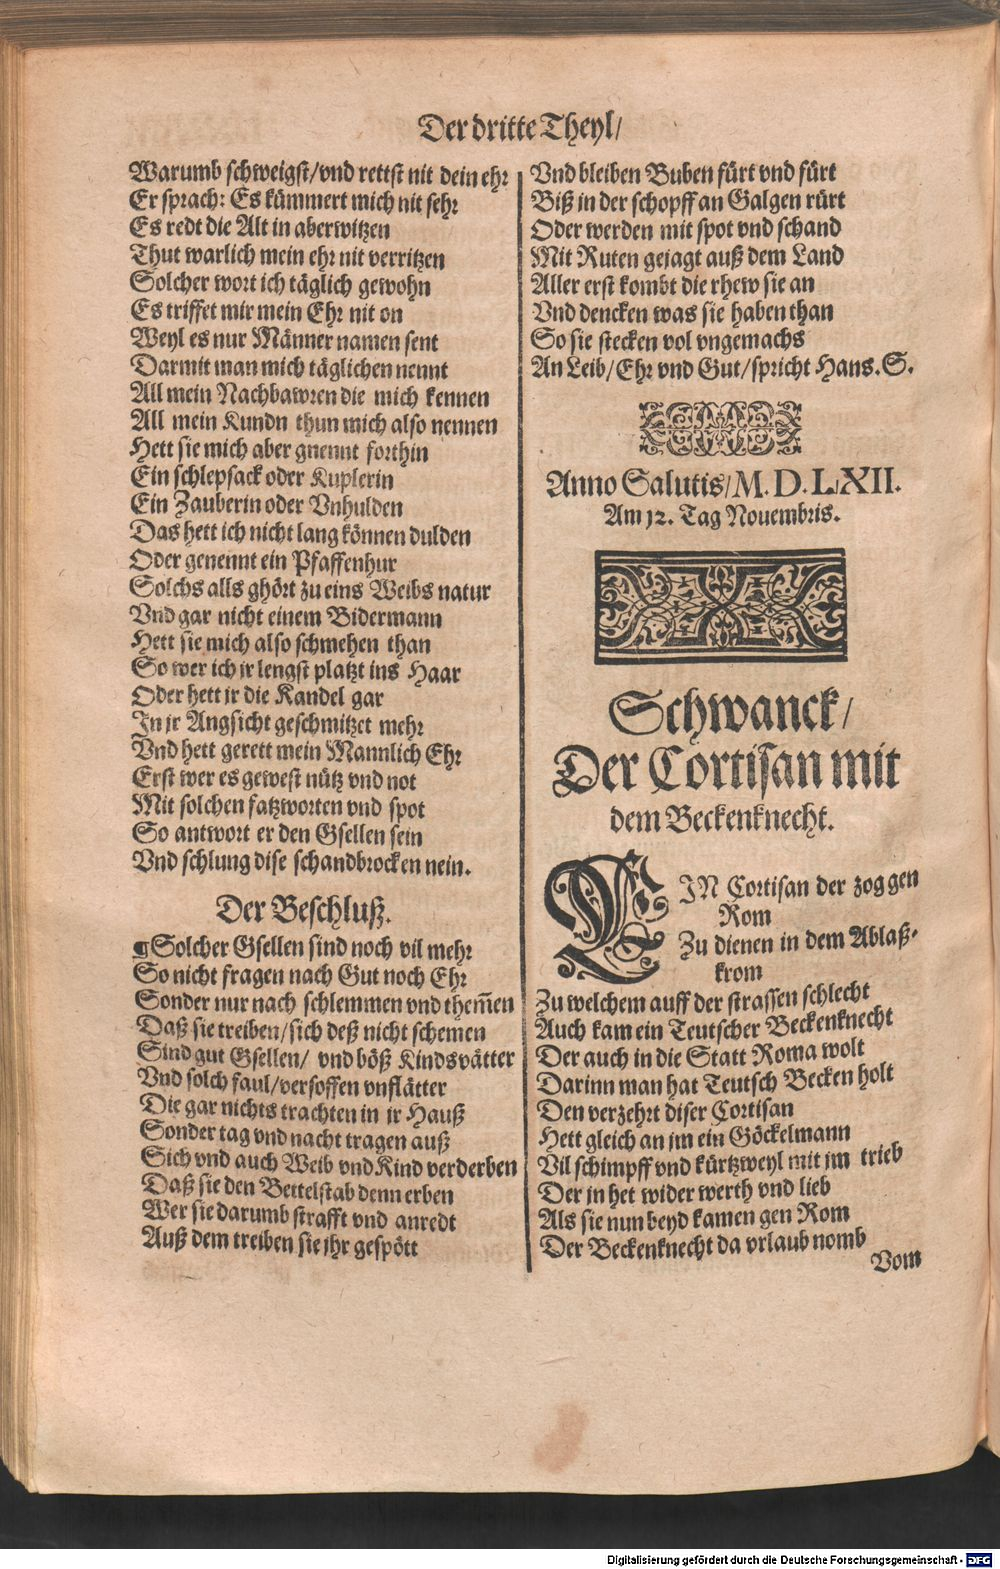 Der dritte Theyl/
Warumb schweigst/vnd rettst nit dein ehr
Er sprach: Es kümmert mich nit sehr
Es redt die Alt in aberwitzen
Thut warlich mein ehr nit verritzen
Solcher wort ich täglich gewohn
Es triffet mir mein Ehr nit on
Weyl es nur Männer namen sent
Darmit man mich täglichen nennt
All mein Nachbawren die mich kennen
All mein Kundn thun mich also nennen
Hett sie mich aber gnennt forthin
Ein schlepsack oder Kuplerin
Ein Zauberin oder Vnhulden
Das hett ich nicht lang können dulden
Oder genennt ein Pfaffenhur
Solchs alls ghört zu eins Weibs natur
Vnd gar nicht einem Bidermann
Hett sie mich also schmehen than
So wer ich jr lengst platzt ins Haar
Oder hett jr die Kandel gar
In jr Angsicht geschmitzet mehr
Vnd hett gerett mein Mannlich Ehr
Erst wer es gewest nütz vnd not
Mit solchen fatzworten vnd spot
So antwort er den Gsellen sein
Vnd schlung dise schandbrocken nein.
Der Beschluß.
¶Solcher Gsellen sind noch vil mehr
So nicht fragen nach Gut noch Ehr
Sonder nur nach schlemmen vnd them̃en
Daß sie treiben/sich deß nicht schemen
Sind gut Gsellen/ vnd böß Kindsvätter
Vnd solch faul/versoffen vnflätter
Die gar nichts trachten in jr Hauß
Sonder tag vnd nacht tragen auß
Sich vnd auch Weib vnd Kind verderben
Daß sie den Bettelstab denn erben
Wer sie darumb strafft vnd anredt
Auß dem treiben sie jhr gespött
Vnd bleiben Buben fürt vnd fürt
Biß in der schopff an Galgen rürt
Oder werden mit spot vnd schand
Mit Ruten gejagt auß dem Land
Aller erst kombt die rhew sie an
Vnd dencken was sie haben than
So sie stecken vol vngemachs
An Leib/Ehr vnd Gut/spricht Hans. S.
Anno Salutis/M. D. LXII.
Am 12. Tag Nouembris.
Schwanck/
Der Cortisan mit
dem Beckenknecht.
EIN Cortisan der zog gen
Rom
Zu dienen in dem Ablaß-
krom
Zu welchem auff der strassen schlecht
Auch kam ein Teutscher Beckenknecht
Der auch in die Statt Roma wolt
Darinn man hat Teutsch Becken holt
Den verzehrt diser Cortisan
Hett gleich an jm ein Göckelmann
Vil schimpff vnd kürtzweyl mit jm trieb
Der jn het wider werth vnd lieb
Als sie nun beyd kamen gen Rom
Der Beckenknecht da vrlaub nomb
Vom
Digitalisierung gefördert durch die Deutsche Forschungsgemeinschaft - DFG